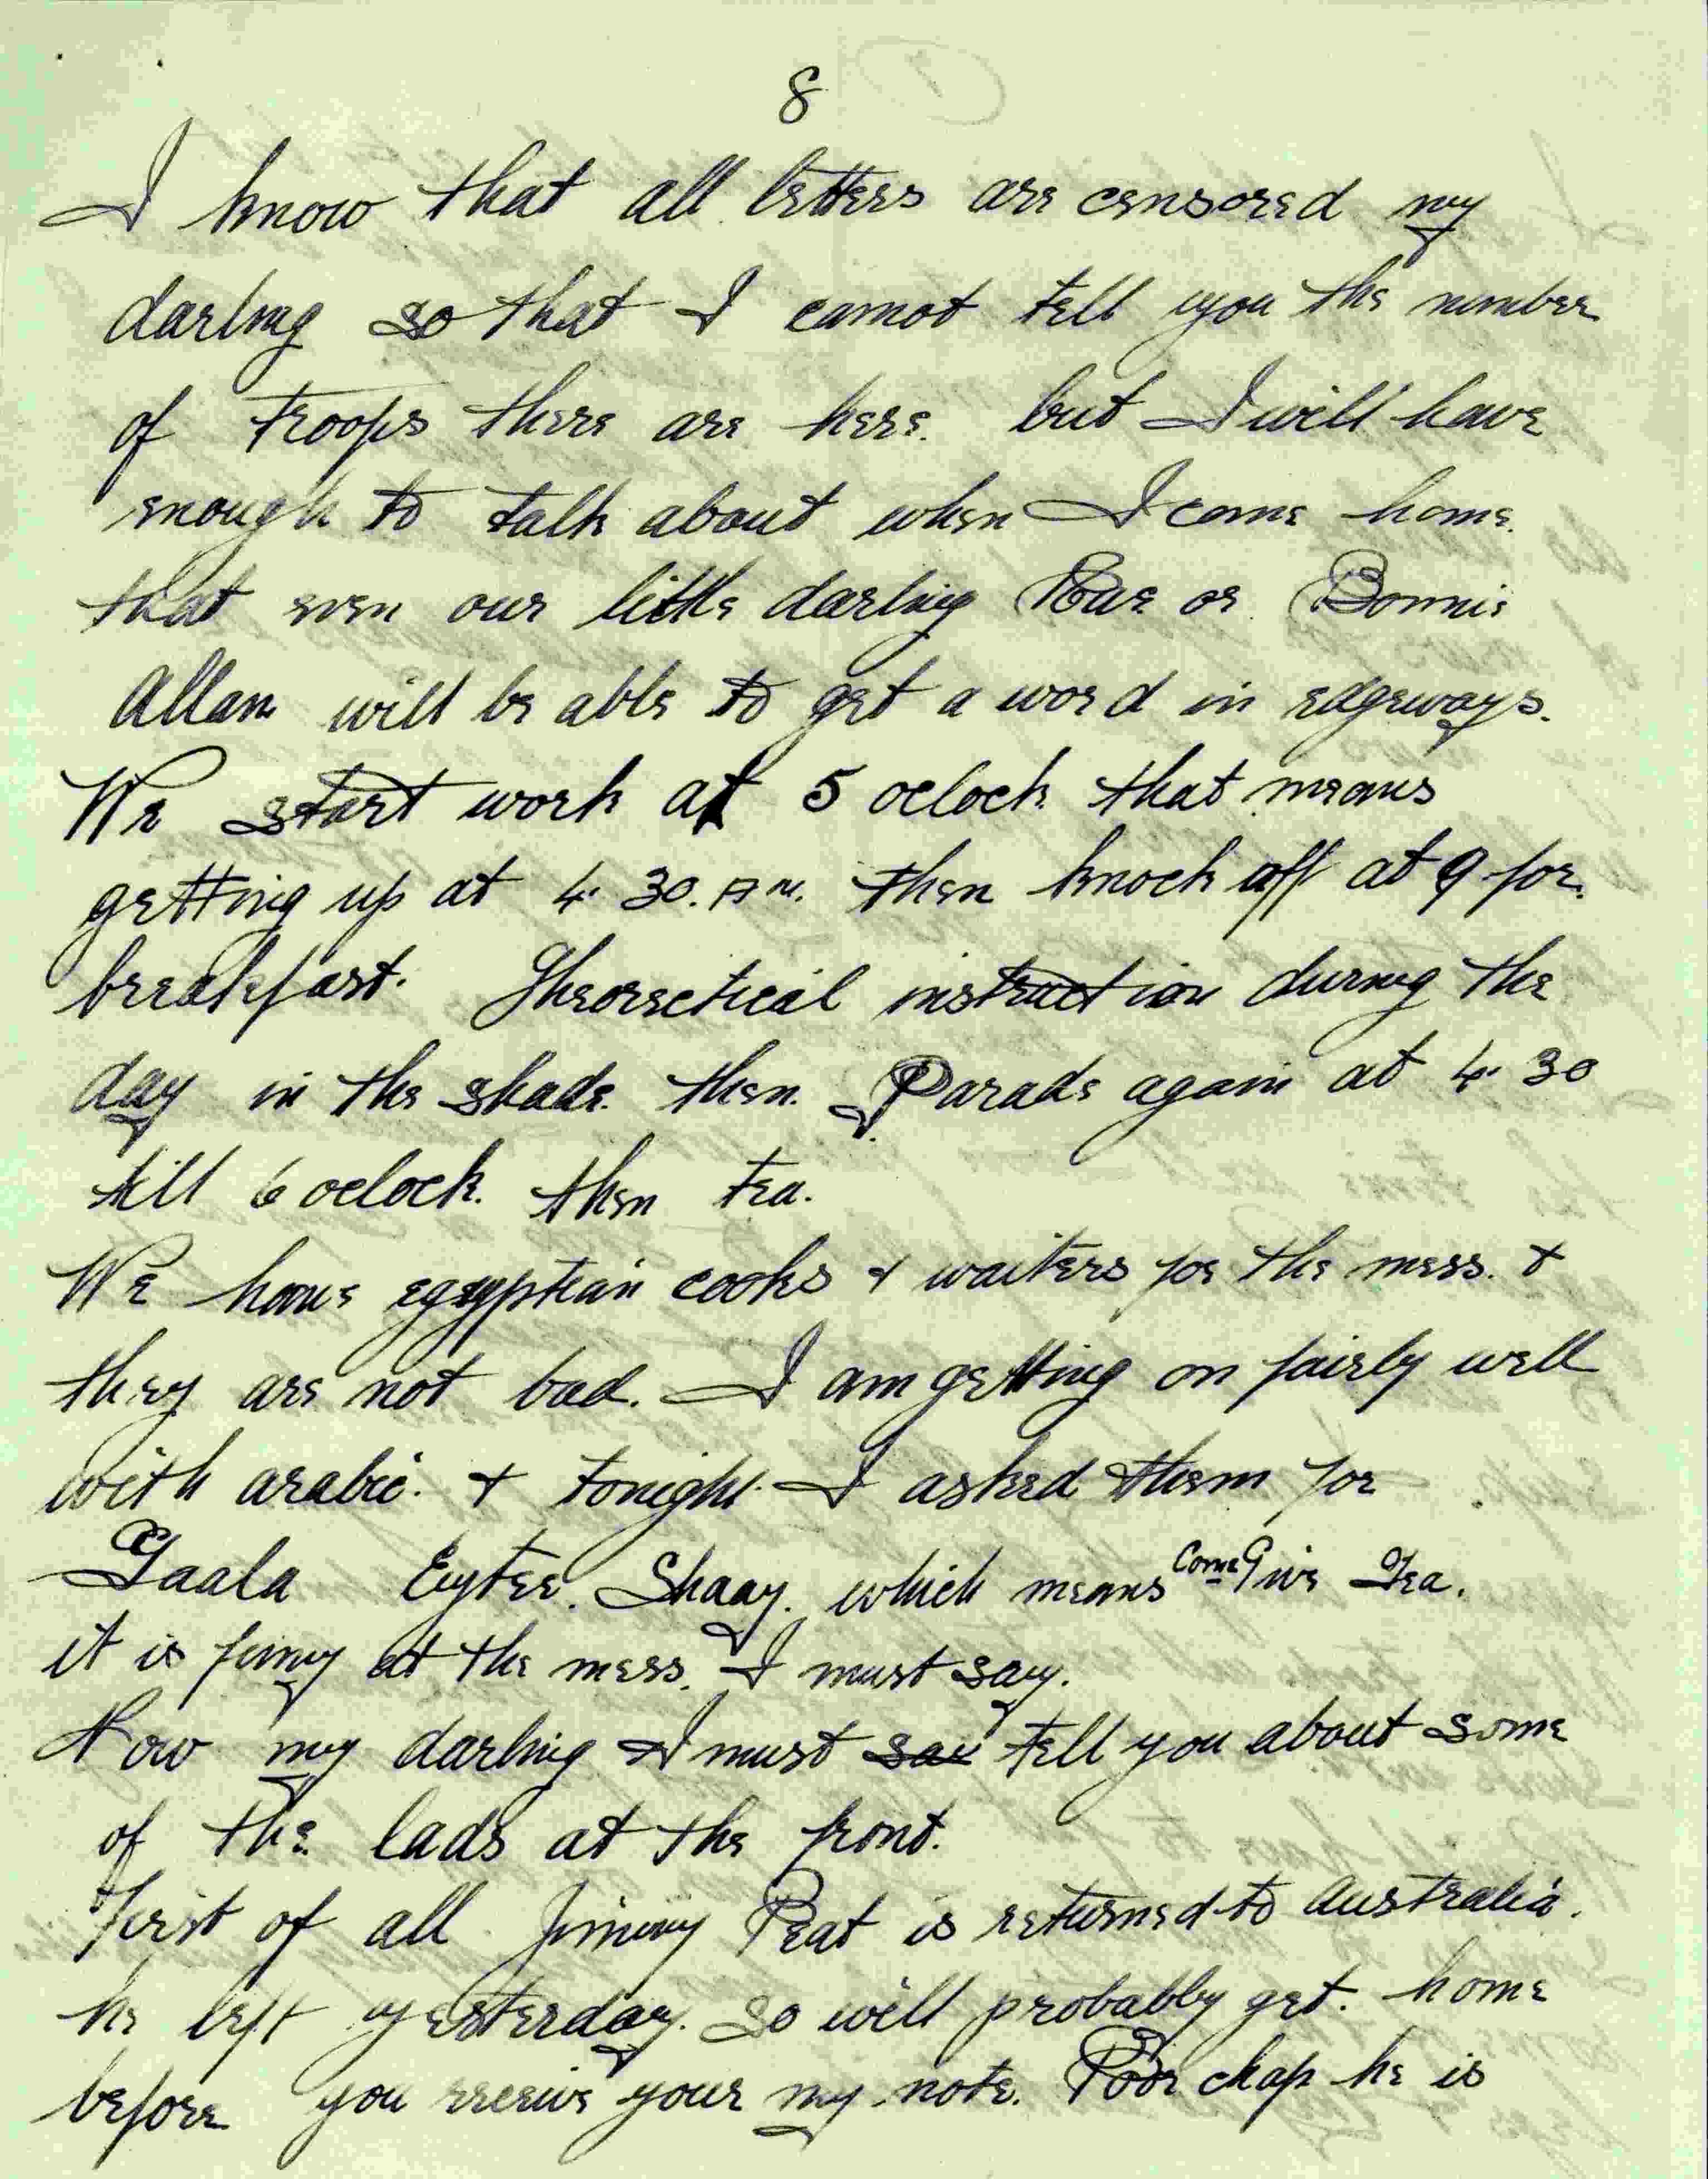 8
I know that all letters are censored my
darling so that I cannot tell you the number
of troops there are here. but I will have
enough to talk about when I come home.
that even our little darling or Bonnie
Allan will be able to get a word in edgeways.
We start work at 5 oclock that means
getting up at 4.30. A.M. then knock off at 9 for.
breakfast. Theorectical instruction during the
day in the shade. then. Parade again at 4.30
till 6 oclock. then tea.
We have egyptian cooks & waiters for the mess. &
they are not bad. I am getting on fairly well
with arabic. & tonight I asked them for
Taala Eytee. Shaay. which means Come Give Tea.
it is funny at the mess. I must say.
Now my darling I must say tell you about some
of the lads at the front.
First of all Jimmy Peat is returned to Australia.
he left yesterday. so will probabbly get. home
before you receive your my note. Poor chap he is